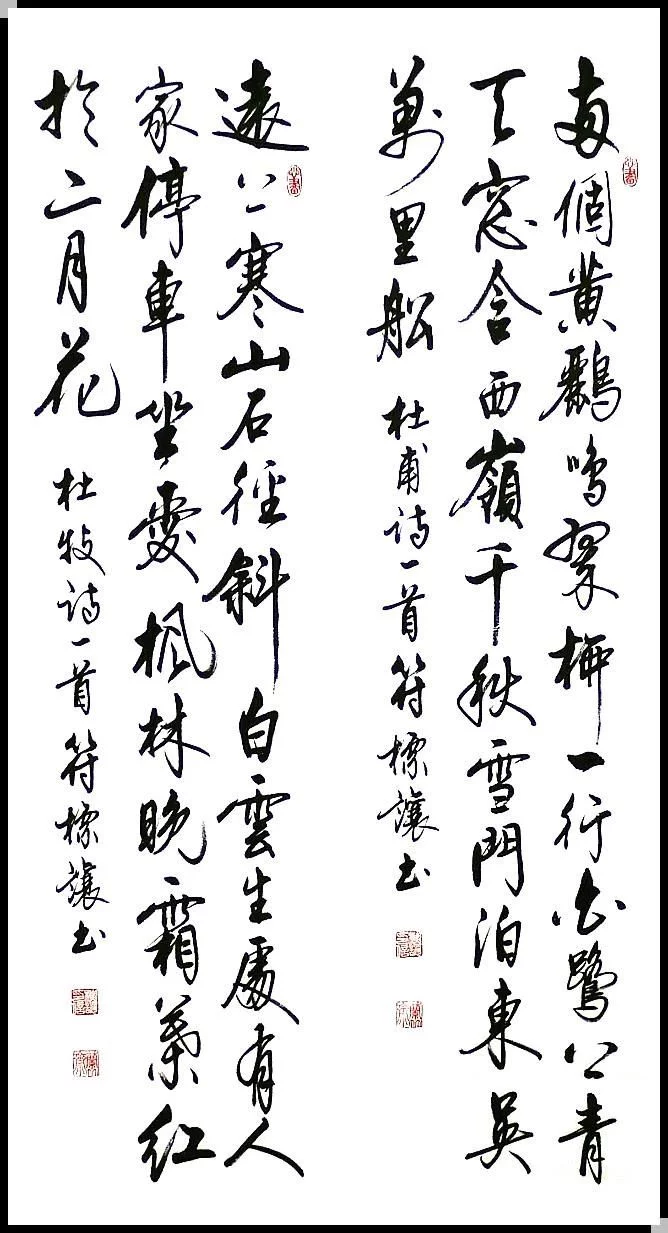 两個黄鸝鳴翠柳一行白鷺上青
天窓含西嶺千秋雪門泊東吴
萬里船 杜甫诗一首符標讓书
遠上寒山石徑斜白雲生處有人
家停車坐愛楓林晚霜葉紅
於二月花 杜牧诗一首符標讓书